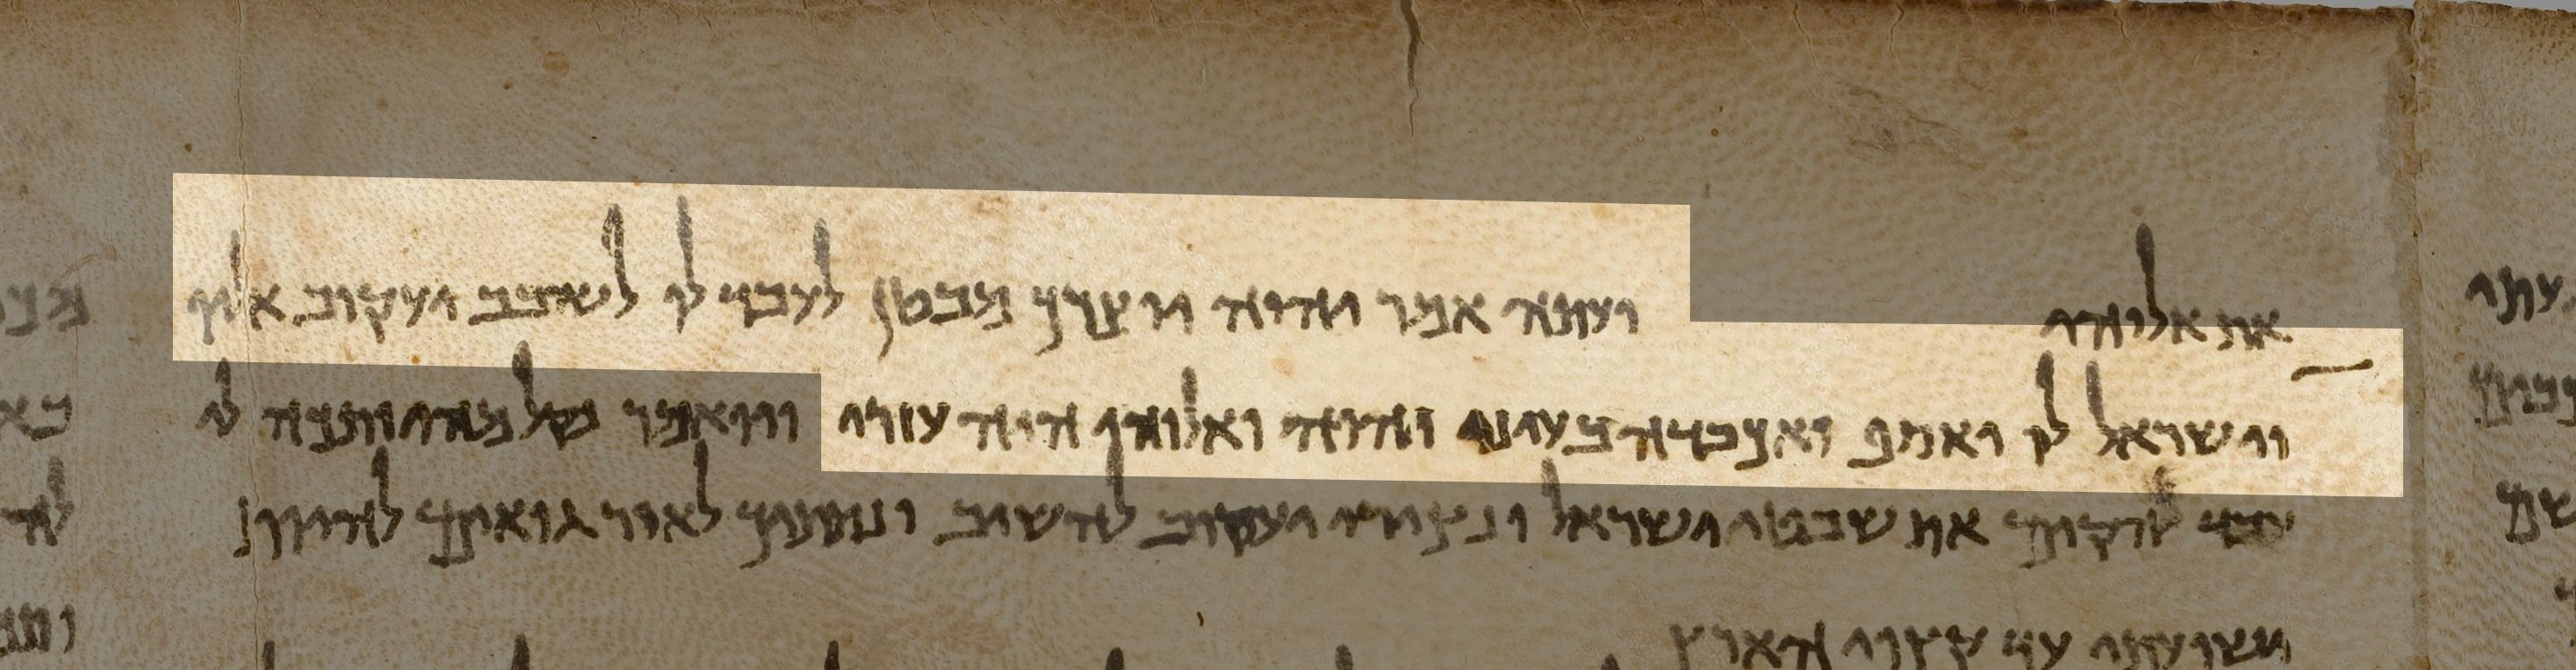 את אלוהי ועתה אמר יהוה יוצרך מבטן לעבד לו לשובב יעקוב אליו
וישראל לו יאסף ואכבדה בעיני יהוה ואלוהי היה עזרי ויואמר נקל מהיותכה לי
עבד להקים את שבטי ישראל ונצירי יעקוב להשיב ונתתיך לאור גואים להיות
ישועתי עד קצוי הארץ